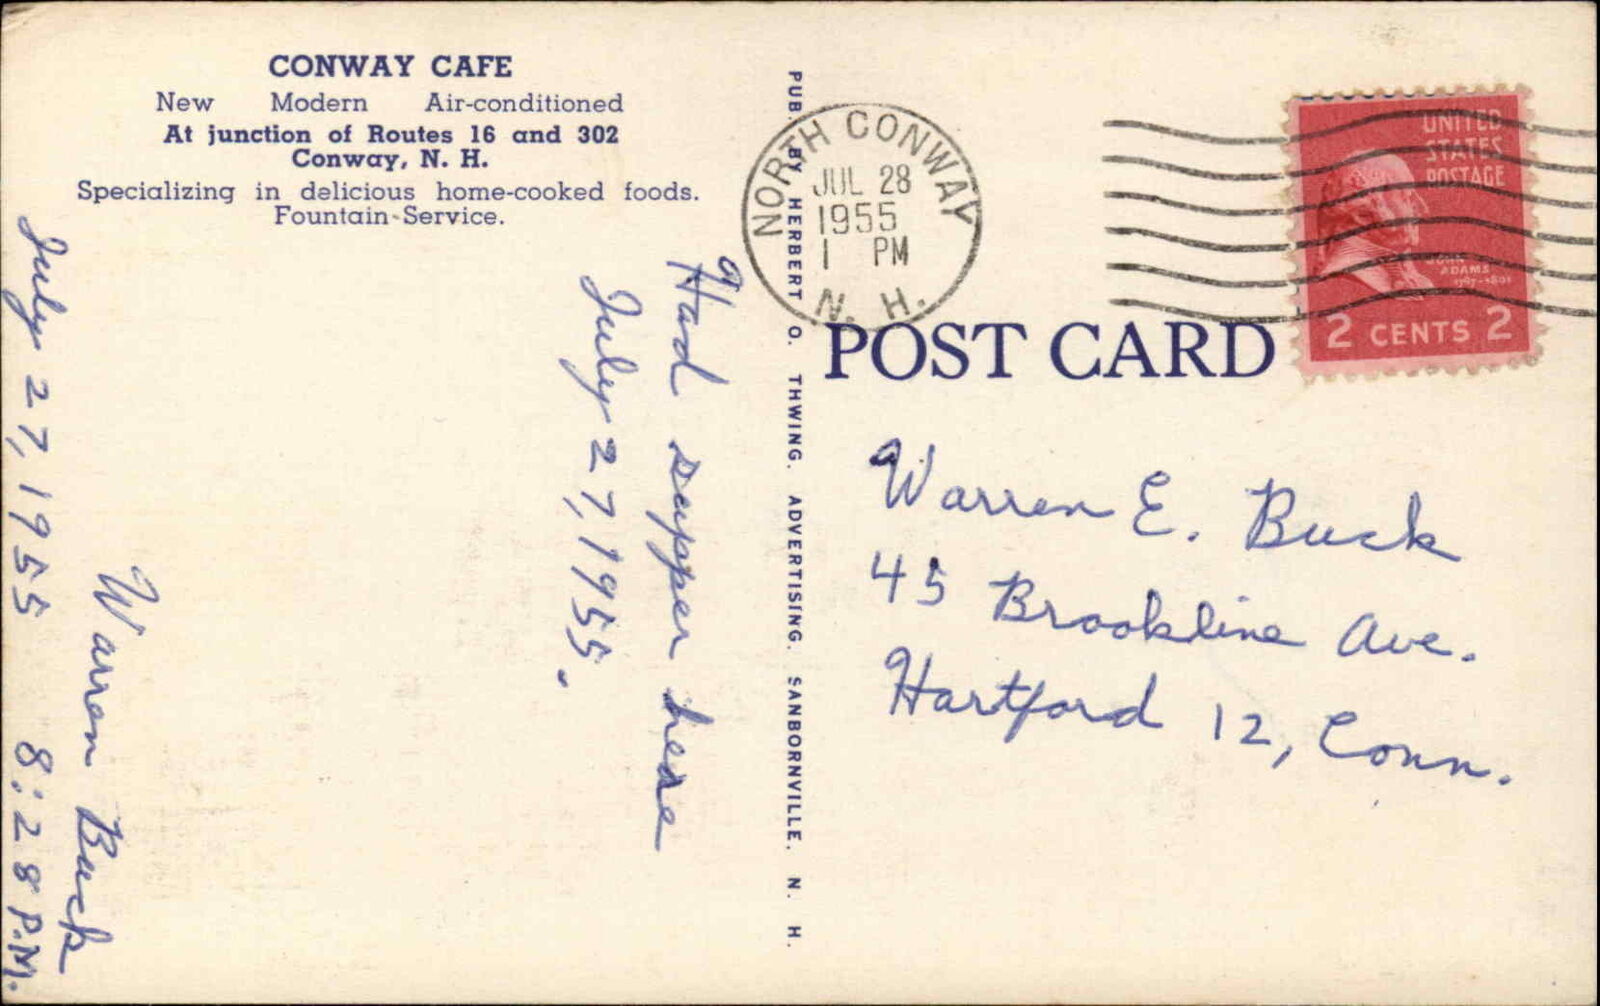 CONWAY CAFE
New Modern Air-conditioned
At junction of Routes 16 and 302
Conway, N. H.
Specializing in delicious home-cooked foods.
Fountain Service.
Had supper here
July 27, 1955.
Warren Buck
July 27, 1955 8:28 P.M.
PUB. BY HERBERT O. THWING. ADVERTISING. SANBORNVILLE. N. H.
NORTH CONWAY
JUL 28
1955
1 PM
N. H.
UNITED
STATES
POSTAGE
JOHN
ADAMS
1797-1801
2 CENTS 2
POST CARD
Warren E. Buck
45 Brookline Ave.
Hartford 12, Conn.